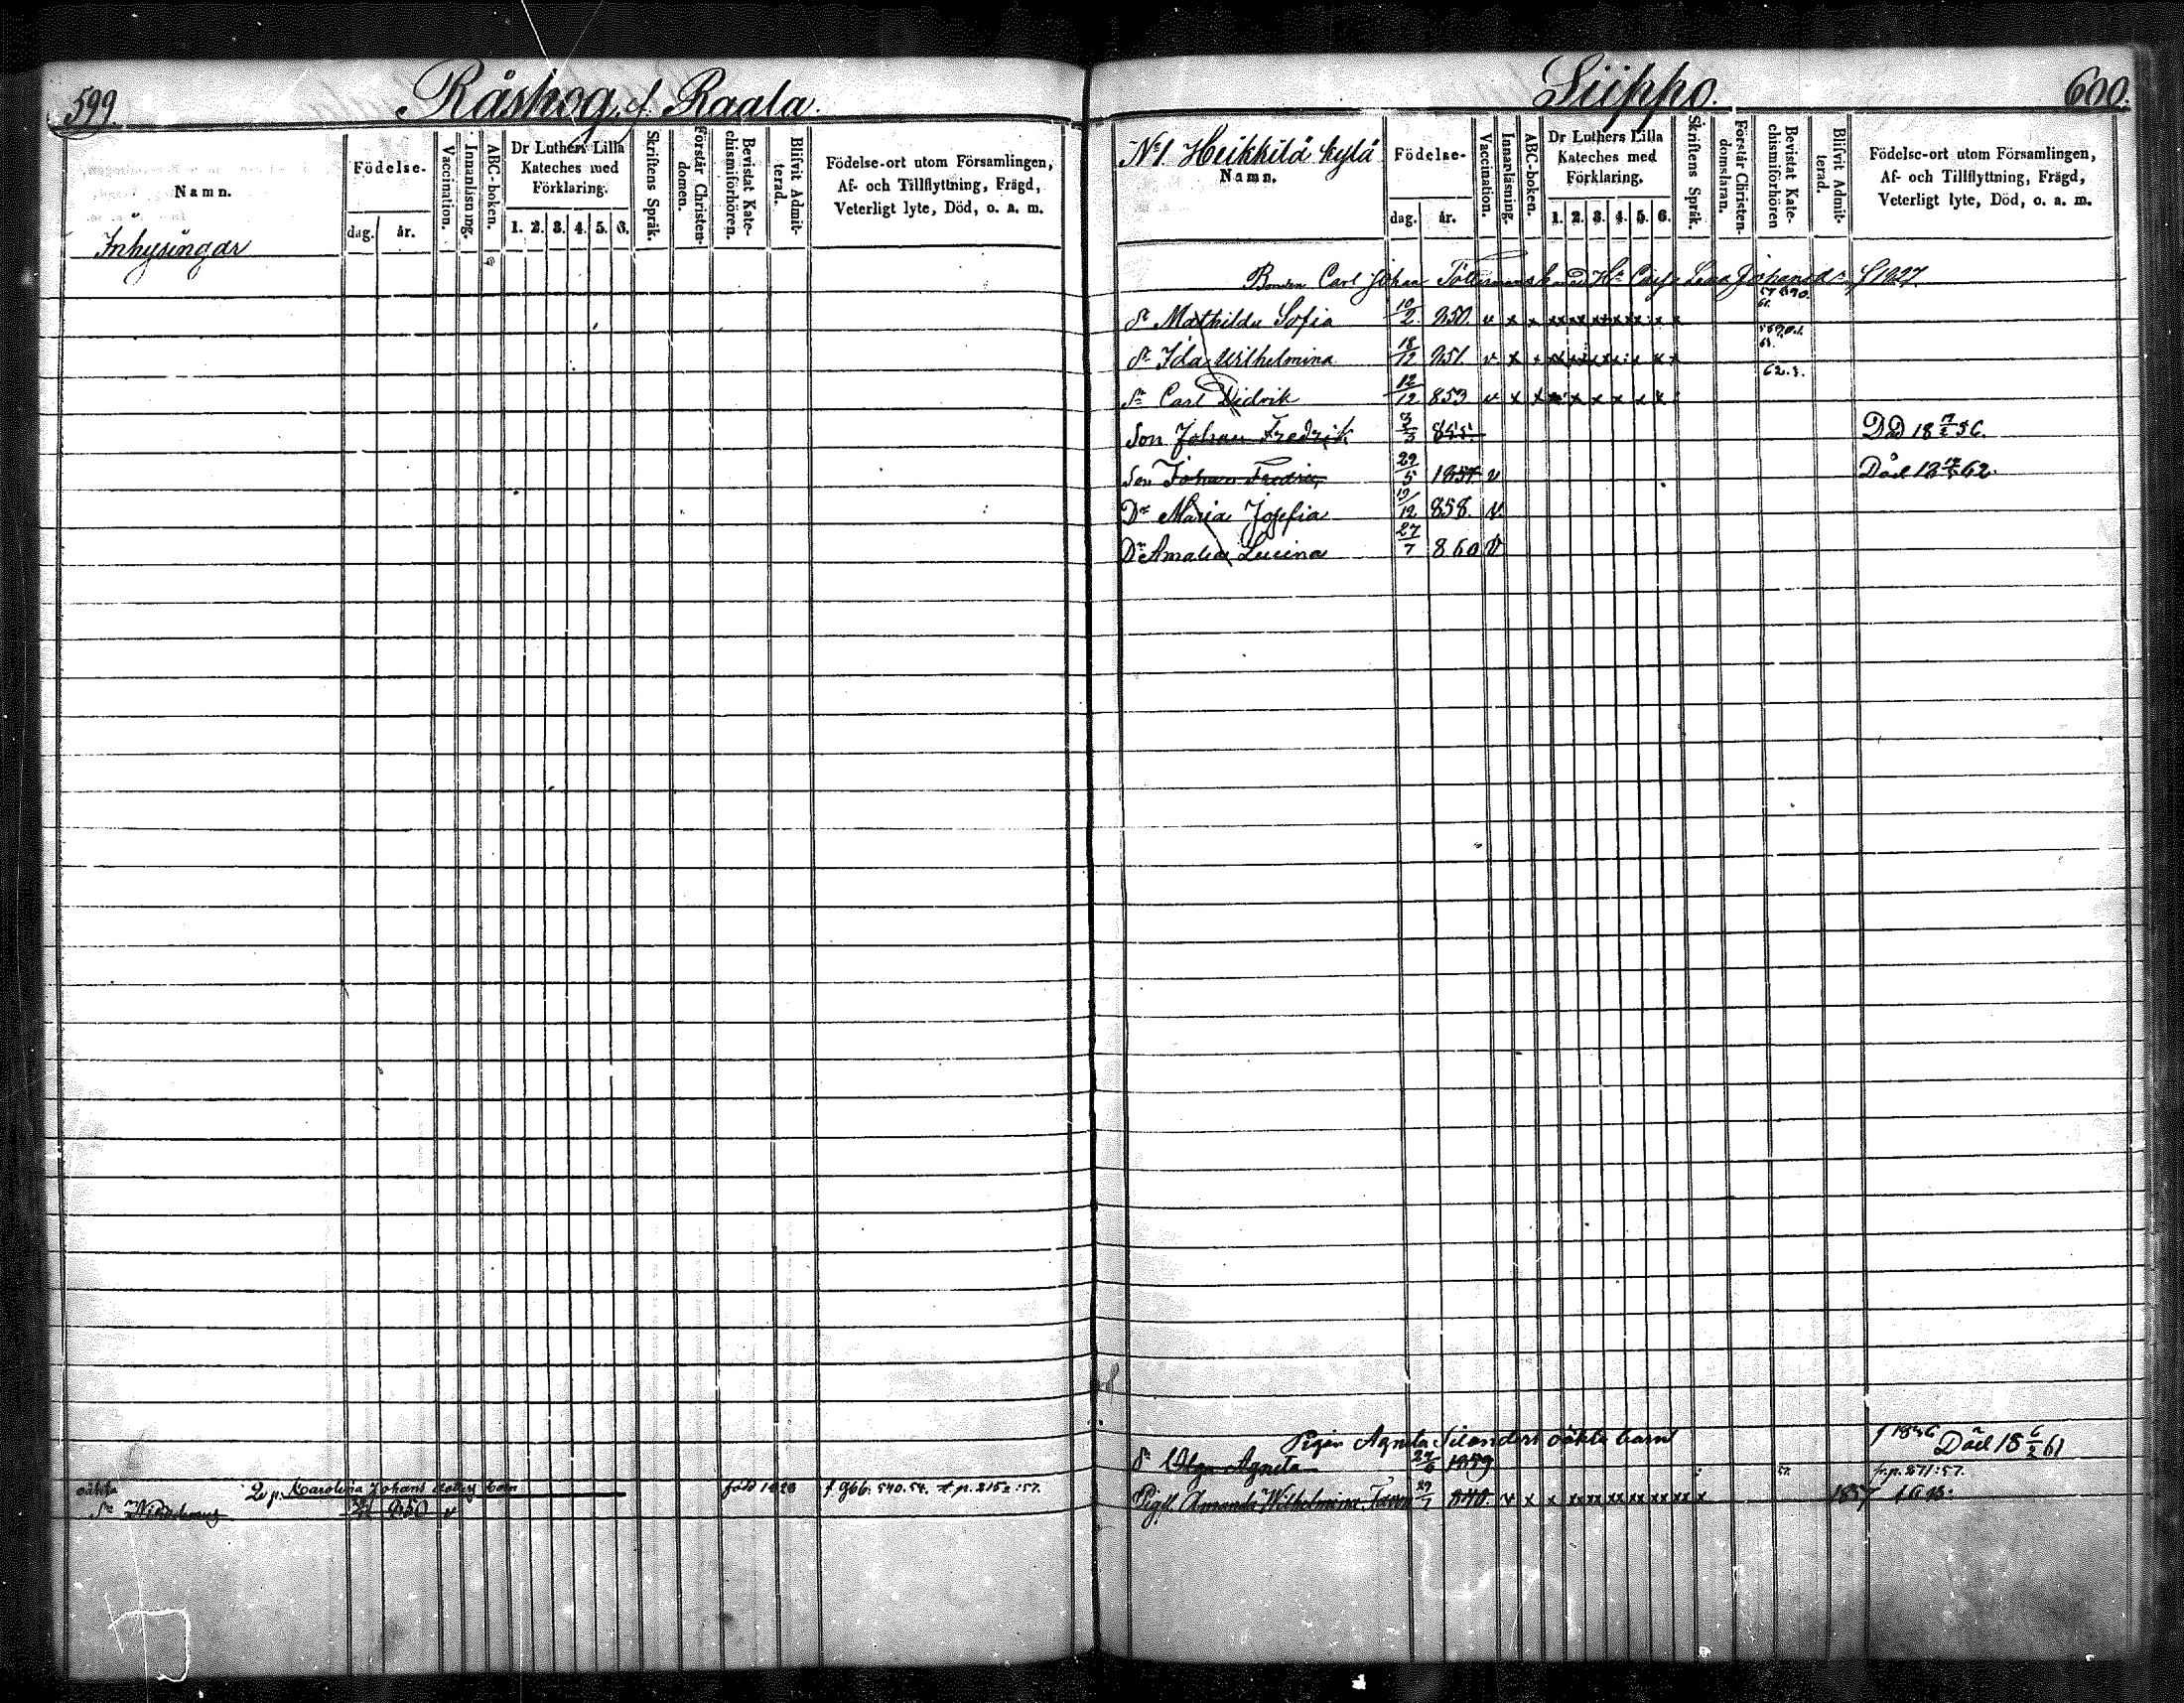 599.
Råskog, f. Raala.
Namn.
Födelse-
dag. år.
Vaccination.
Innanläsning.
ABC-boken.
Dr Luthers Lilla
Kateches med
Förklaring.
1. 2. 3. 4. 5. 6.
Skriftens Språk.
Förstår Christen-
domen.
Bevistat Kate-
chismiförhören.
Blifvit Admit-
terad.
Födelse-ort utom Församlingen,
Af- och Tillflyttning, Frägd,
Veterligt lyte, Död, o. a. m.
Inhysingar
oäkta
Karolina Johans dotters barn född 1828 f. 966. 540. 54. t. p. 215 : 57.
Sn 850 v
Siippo.
600.
No 1. Heikkilä kylä
Namn.
Födelse-
dag. år.
Vaccination.
Innanläsning.
ABC-boken.
Dr Luthers Lilla
Kateches med
Förklaring.
1. 2. 3. 4. 5. 6.
Skriftens Språk.
Förstår Christen-
domsläran.
Bevistat Kate-
chismiförhören
Blifvit Admit-
terad.
Födelse-ort utom Församlingen,
Af- och Tillflyttning, Frägd,
Veterligt lyte, Död, o. a. m.
Bonden Carl Johan Lena Johansdr f 1827
Mathilda Sofia 10/2 850. v x x x x x x x x
Ida Wilhelmina 18/12 851. v x x x x x x x x
Sn Carl Didrik 12/12 853 v x x x x x x x x
62. 3.
Son Johan Fredrik 855. Död 18 56.
Son Johan Fredric 29/5 1857 v Död 18 62.
Dr Maria Josefia 12 858. v.
Dr Amalia Lucina 27/7 860 v
Pigan Agneta Silanders oäkta barn f 1836
Olga Agneta 1859 Död 18 6/2 61
57. fr. p. 271 : 57.
Amanda Wilhelmina 840. v x x x x x x x x x 1857